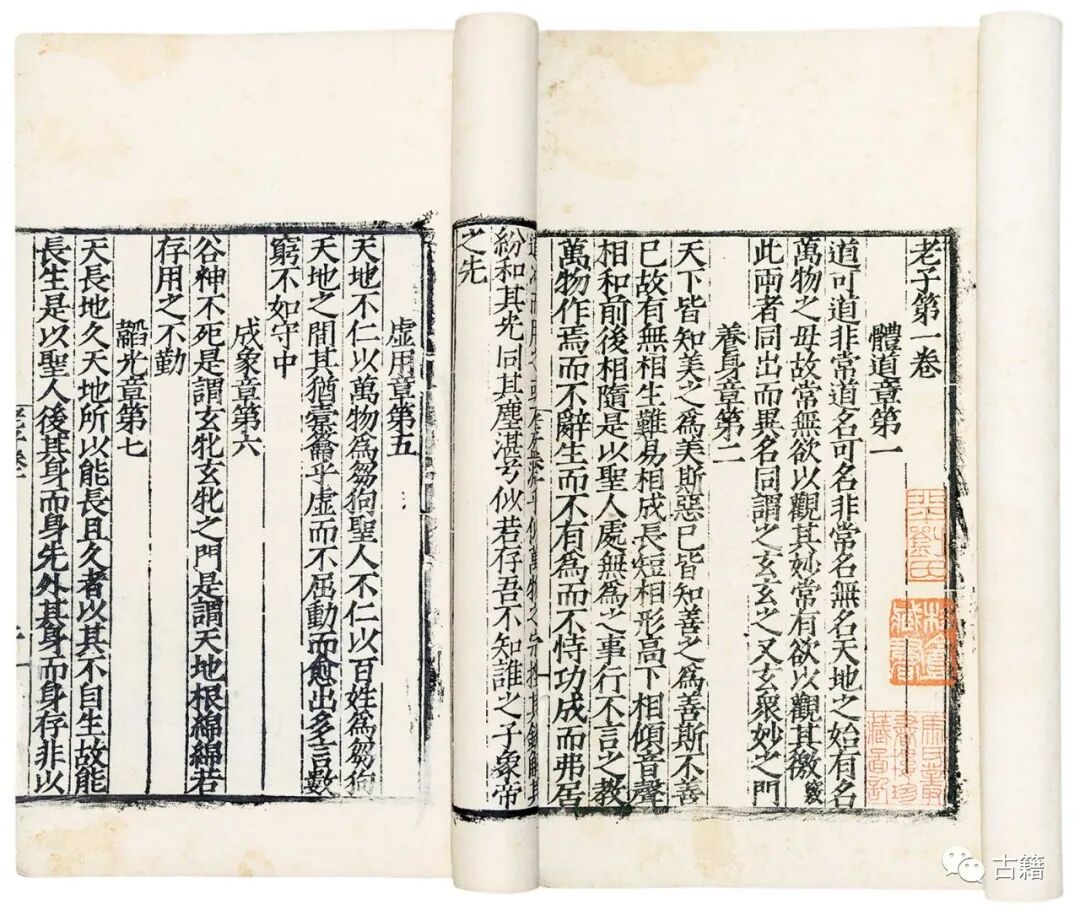 老子第一卷
體道章第一
道可道非常道名可名非常名無名天地之始有名
萬物之母故常無欲以觀其妙常有欲以觀其徼
此兩者同出而異名同謂之玄玄之又玄衆妙之門
養身章第二
天下皆知美之爲美斯惡已皆知善之爲善斯不善
已故有無相生難易相成長短相形高下相傾音聲
相和前後相隨是以聖人處無爲之事行不言之教
萬物作焉而不辭生而不有爲而不恃功成而弗居
紛和其光同其塵湛兮似若存吾不知誰之子象帝
之先
虛用章第五
天地不仁以萬物爲芻狗聖人不仁以百姓爲芻狗
天地之間其猶橐籥乎虛而不屈動而愈出多言數
窮不如守中
成象章第六
谷神不死是謂玄牝玄牝之門是謂天地根綿綿若
存用之不勤
韜光章第七
天長地久天地所以能長且久者以其不自生故能
長生是以聖人後其身而身先外其身而身存非以
藏書
古籍